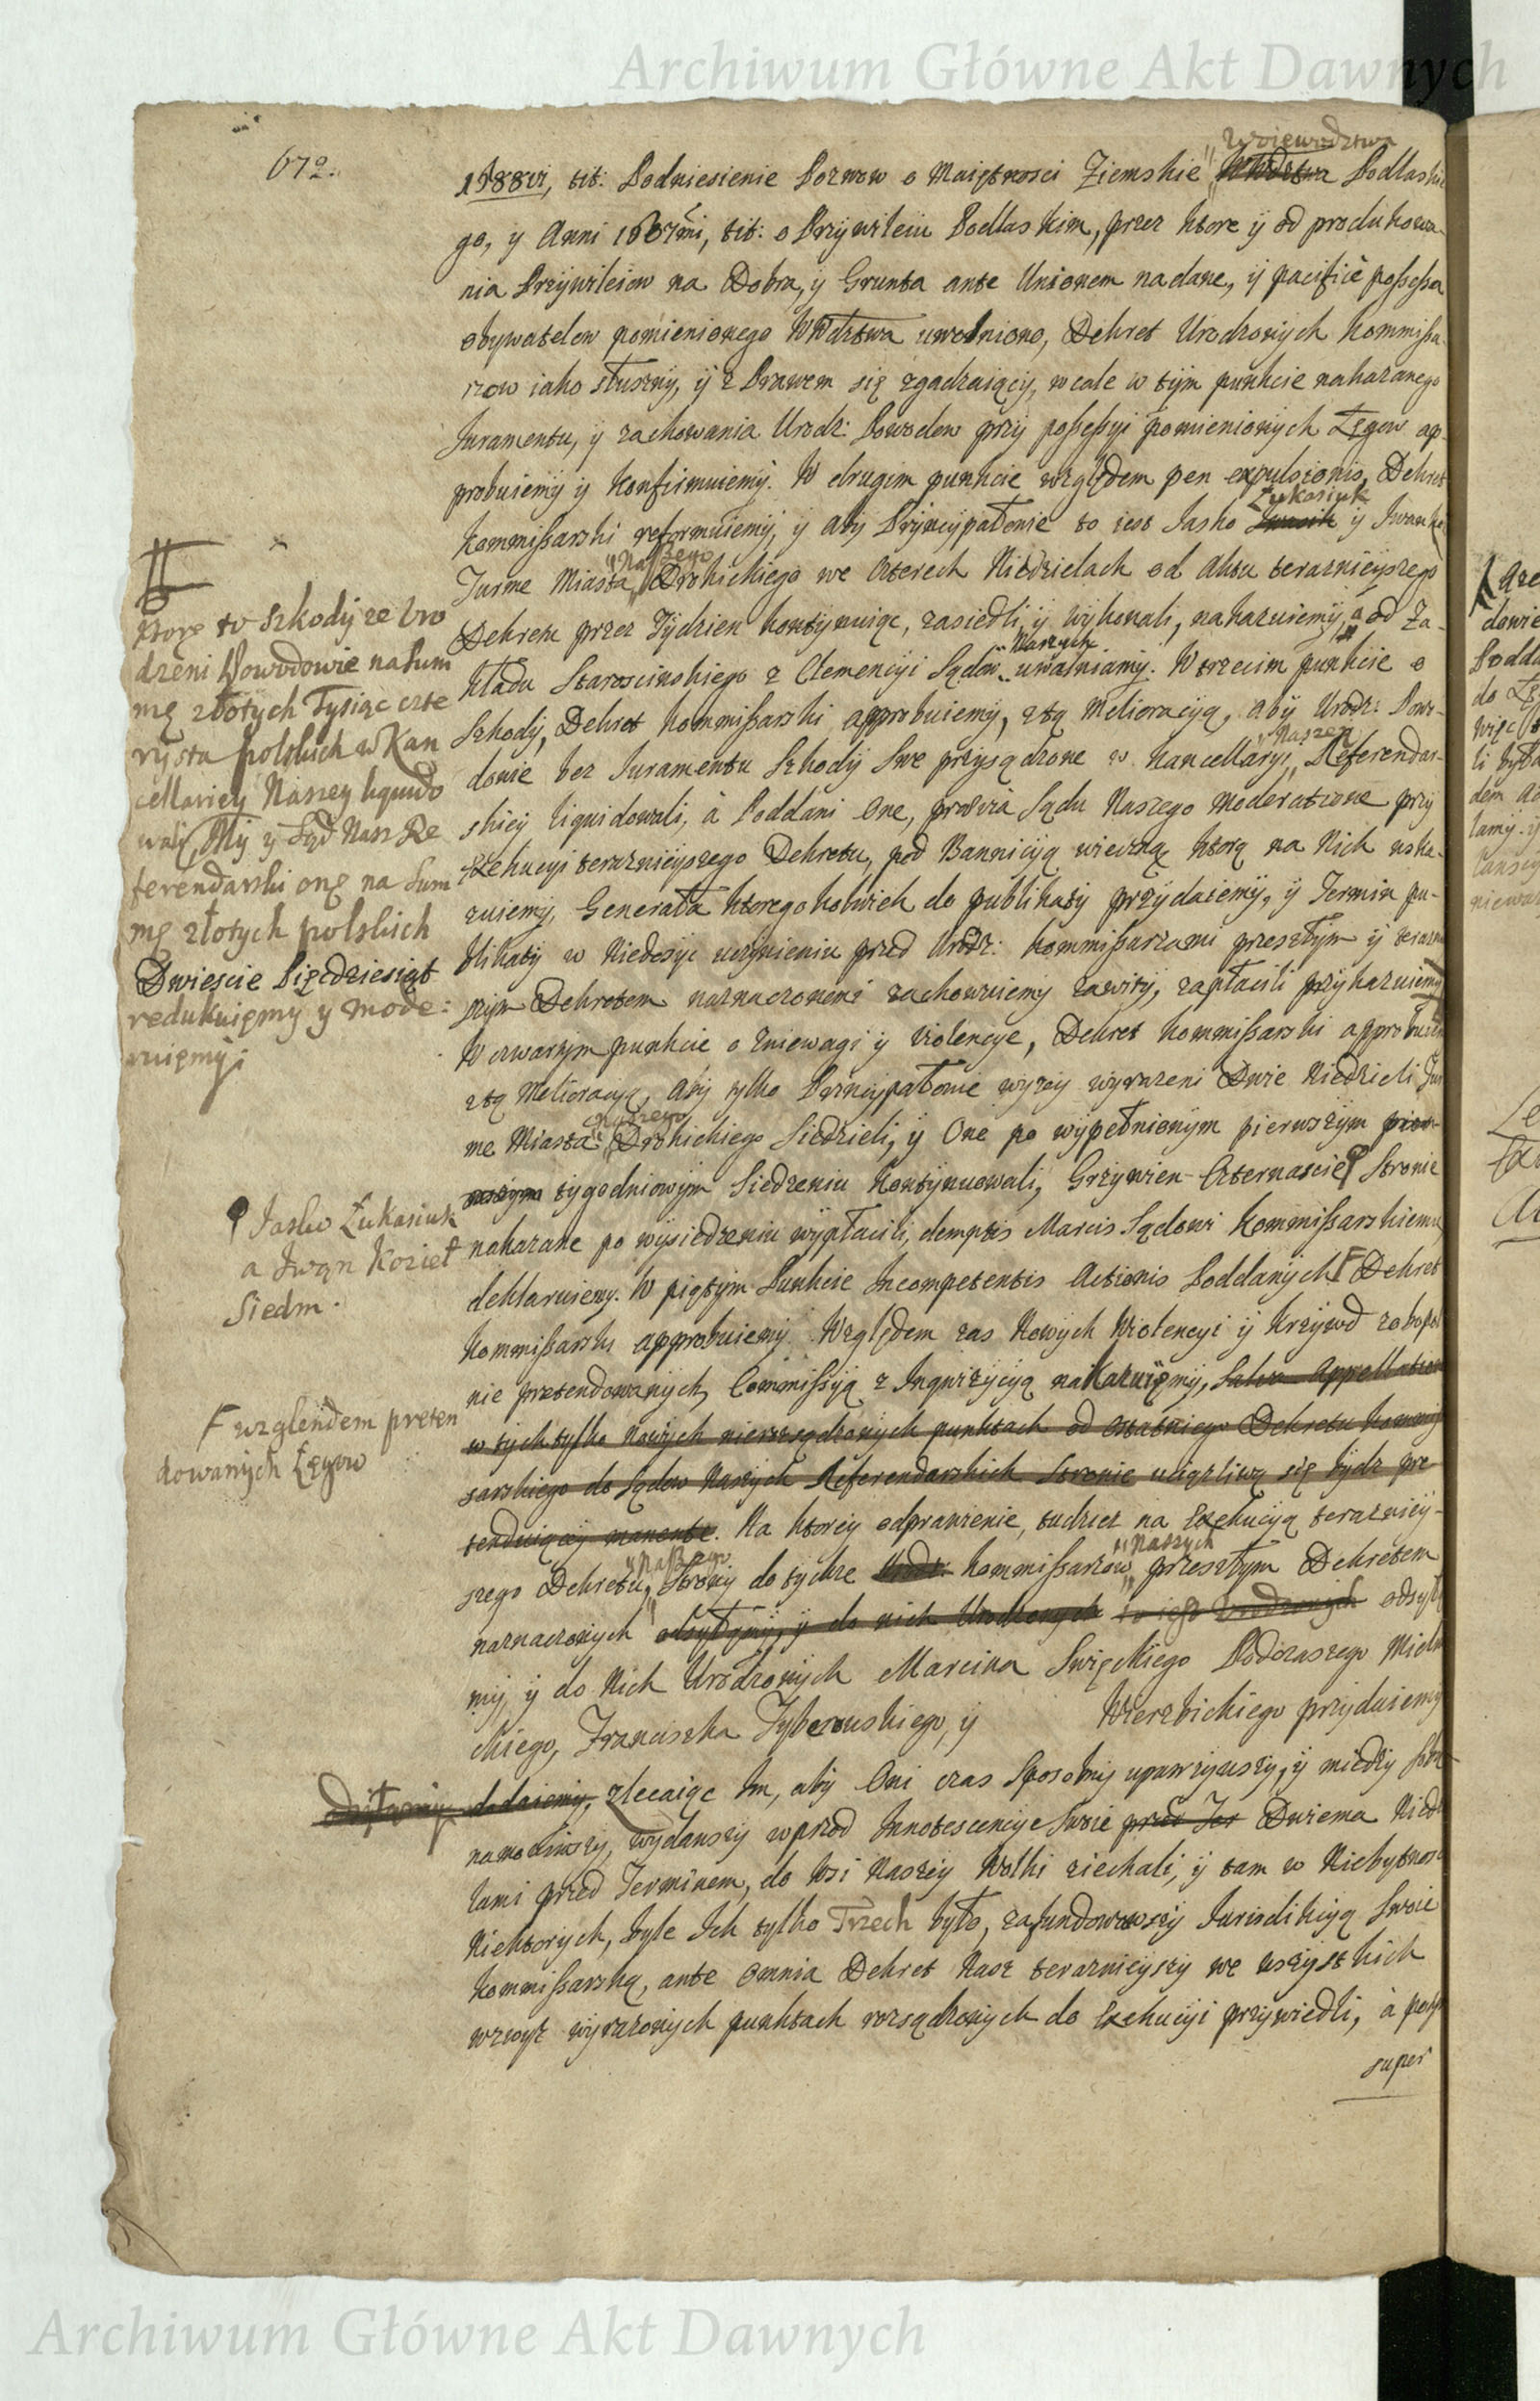 Archiwum Główne Akt Dawnych
672.
Woiewodztwa
1588vi, tit: Podniesienie Pozwow o Maiętnosci Ziemskie Wwdztwa Podlaskie
go, y Anni 1607mi, tit: o Przywileiu Podlaskim, przez ktore ÿ od produkowa-
nia Przywileiow na Dobra, y Grunta ante Unionem nadane, ÿ pacificè poßeßa
obywatelow pomienionego WWdztwa uwolniono, Dekret Urodzonÿch Kommißa-
rzow iako słusznÿ, ÿ z Prawem się zgadzaiącÿ, wcale w tÿm punkcie nakazanego
Juramentu, ÿ zachowania Urodz: Powodow przÿ poßeßyi pomienionÿch Łęgow ap-
probuiemÿ ÿ konfirmuiemÿ. W drugim punkcie względem pen expulsionis, Dekret
Łukasiuk
Kommißarski reformuiemÿ, ÿ aby Prÿncÿpałowie to iest Jasko ÿ Iwan
Naßzego
Turme Miasta Drohickiego we czterech Niedzielach od Aktu teraznieÿszego
Dekretu przez Tÿdzien kontÿnuiąc, zasiedli, ÿ wykonali, nakazuiemÿ, a od Za-
Naszych
kładu Staroscinskiego z Clemencyi Sądow uwalniamÿ. W trzecim punkcie o
Szkody, Dekret Kommißarski approbuiemy, ztą Melioracyą, aby Urodz: Powo-
Naszey
dowie bez Juramentu Szkody swe przysądzone w Kancellaryi Referendar-
skiey liquidowali, à Poddani One, prævia Sądu Naszego moderatione przy
Exekucyi teraznieyszego Dekretu, pod Bannicyą wieczną ktorą na Nich uska-
zuiemy, Generała ktoregokolwiek do publikaty przydaiemÿ, ÿ Termin pu-
blikaty w Niedosyc uczynieniu przed Urodz: Kommißarzami przeszłÿm ÿ terazn
szÿm Dekretem naznaczonemi zachowuiemy zawitÿ, zapłacili przykazuiemy
W czwartym punkcie o zniewagi ÿ violencye, Dekret Kommißarski approbuiem
ztą Melioracyą, aby tylko Prÿncypałowie wyzey wyrazeni Dwie Niedzieli Tur
Naszego
me Miasta Drohickiego Siedzieli, ÿ One po wÿpełnionÿm pierwszÿm pier-
wszym tygodniowym Siedzeniu kontÿnuowali, Grzywien Czternascie Stronie
nakazane po wysiedzeniu wÿpłacili, demptis Marcis Sądowi Kommißarskiemu
deklaruiemy. W piątÿm Punkcie Incompetentis Actionis Poddanÿch F Dekret
Kommißarski approbuiemÿ. Względem zas Nowÿch Violencyi ÿ Krzÿwd zobopol
nie pretendowanÿch, Commißyą z Inqwizycÿą nakazuięmÿ, Salva Appellatione
w tych tylko Nowÿch nierozsądzonÿch punktach od ostatniego Dekretu Kommis
sarskiego do Sądow Naszÿch Referendarskich Stronie uciązliwą się bÿdz pre
tenduiącey manente. Na ktorey odprawienie, tudziez na Exekucyą teraznieÿ-
Naßzego
Naszych
szego Dekretu, Stronÿ do tychze Urodz: Kommißarzow przeszłÿm Dekretem
naznaczonÿch odsyłamÿ, ÿ do nich Urodzonÿch to iest Urodzonÿch odsyła
mÿ, ÿ do Nich Urodzonÿch Marcina Swięckiego Podczaszego Miel
ckiego, Franciszka Tyborowskiego, ÿ Wierzbickiego przÿdaiemy
odsyłamy dodaiemy, zlecaiąc Im, abÿ Oni czas Sposobnÿ upatrzÿwszÿ, ÿ miedzy sobą
namowiwszÿ, wydawszÿ wprzod Innotescencye Swoie przed Ter Dwiema Niedzie
lami przed Terminem, do Wsi Naszey Wolki ziechali, ÿ tam w Niebytnosci
Niektorÿch, byle Ich tylko Trzech było, zafundowawszÿ Jurisdikcyą Swoie
Kommißarską, ante omnia Dekret Nasz teraznieÿszÿ we wszÿstkich
wzwyz wyrazonÿch punktach rozsądzonÿch do Exekucyi przÿwiedli, à post
super
Ktorę to szkodÿ ze Uro
dzeni Powodowie na Sum
mę złotych Tysiąc czte
rysta polskich w Kan
cellariey Naszey liquido
wali, My y Sąd Nasz Re
ferendarski onę na Sum
mę złotych polskich
Dwiescie Pięcdziesiąt
redukuięmy y mode:
ruięmÿ:
Jasko Łukasiuk
a Iwąn Kozieł
Siedm.
F wzglendem preten
dowanÿch Łęgow
Archiwum Główne Akt Dawnych